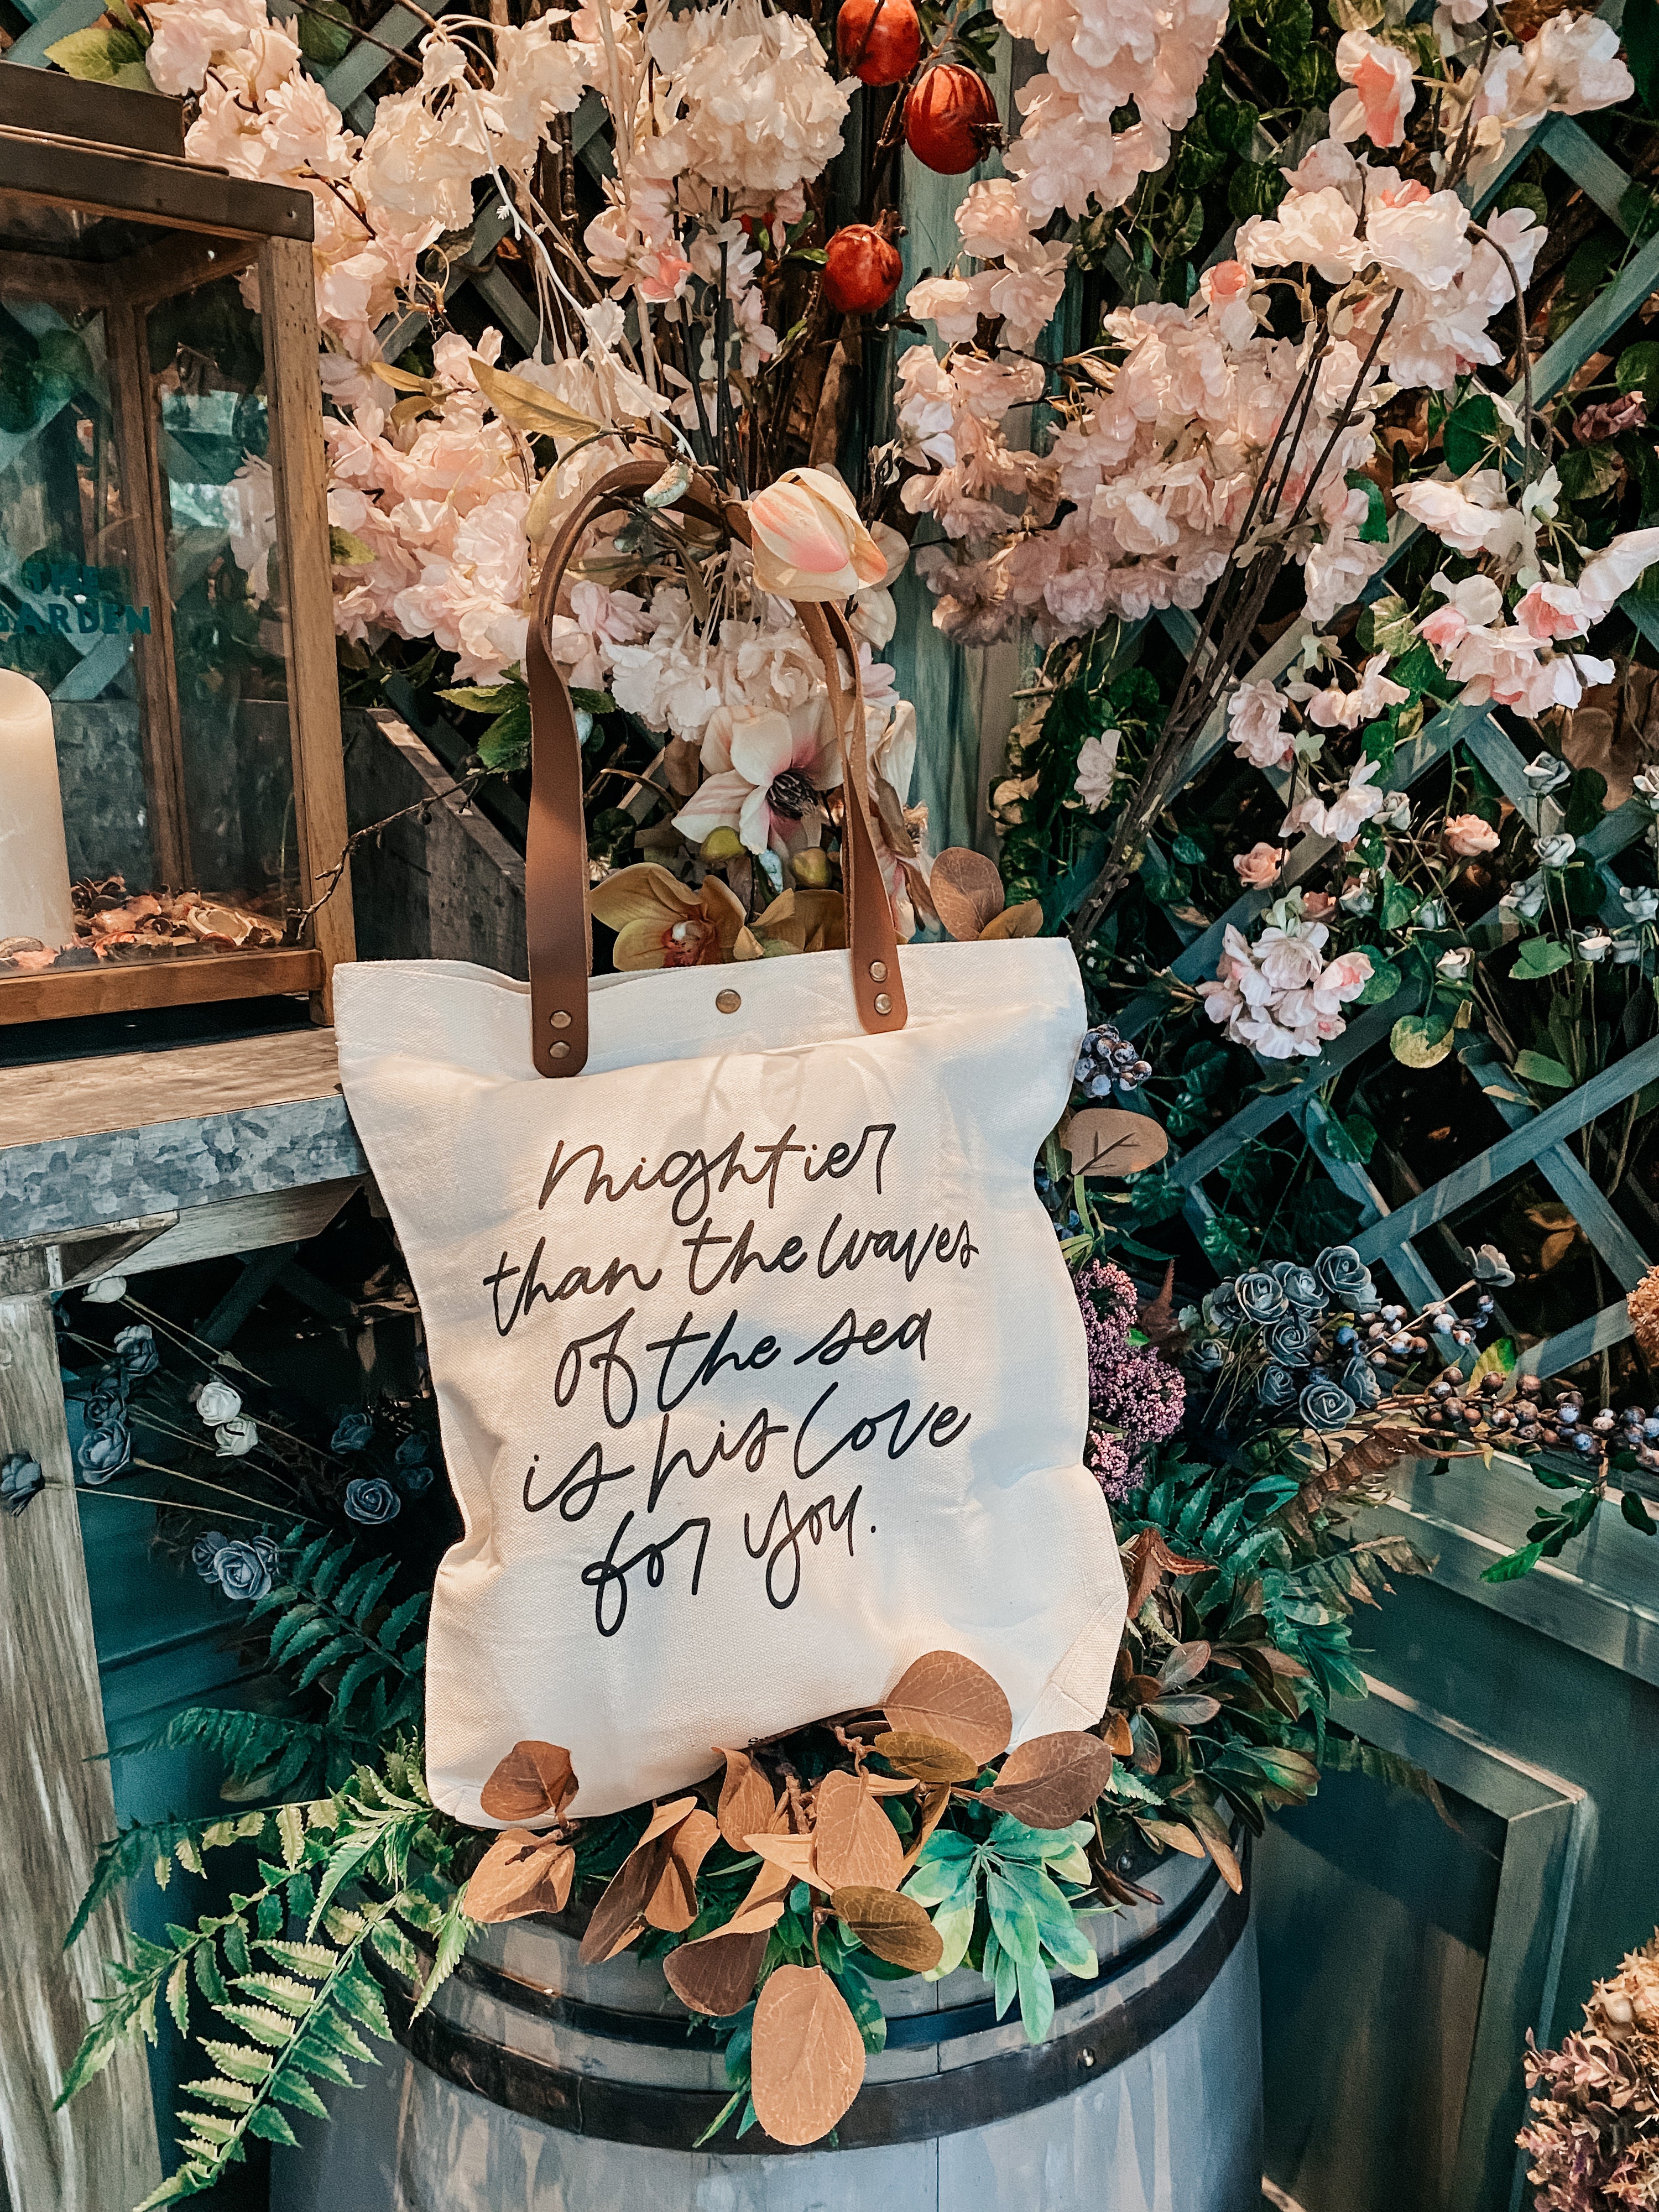 THE
GARDEN
Mightier
than the waves
of the sea
is his love
for you.